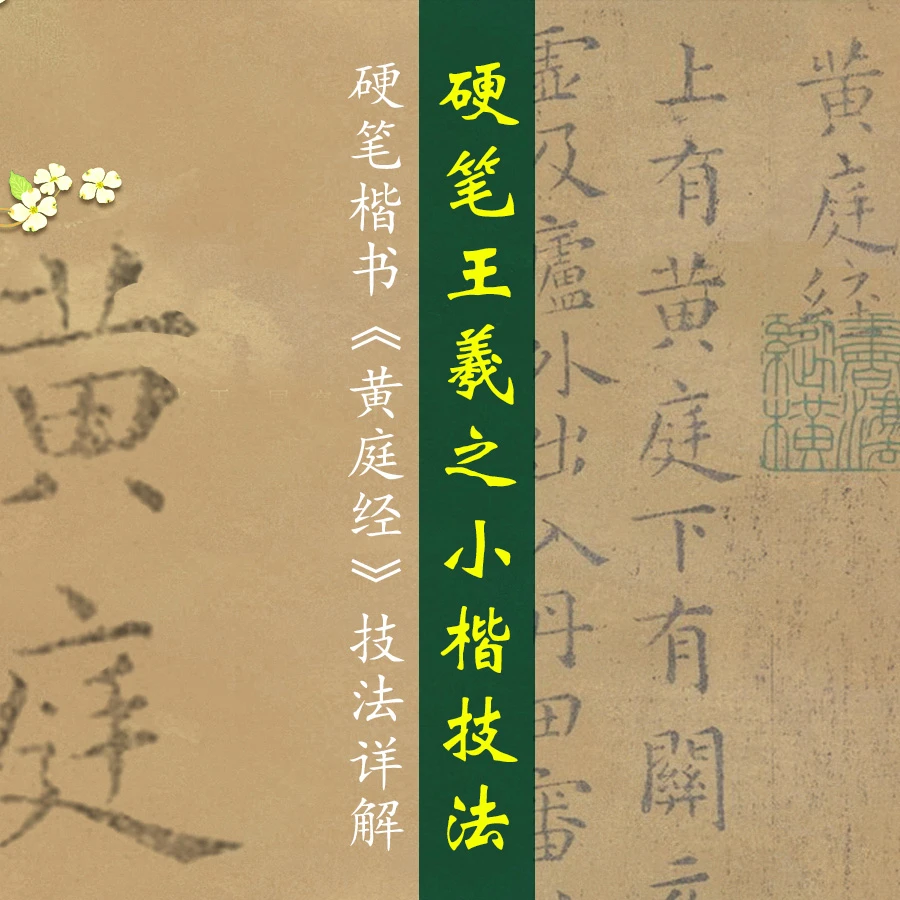 黄庭經
上有黄庭下有關
廬外出入丹田審
硬笔王羲之小楷技法
硬笔楷书《黄庭经》技法详解
黄庭